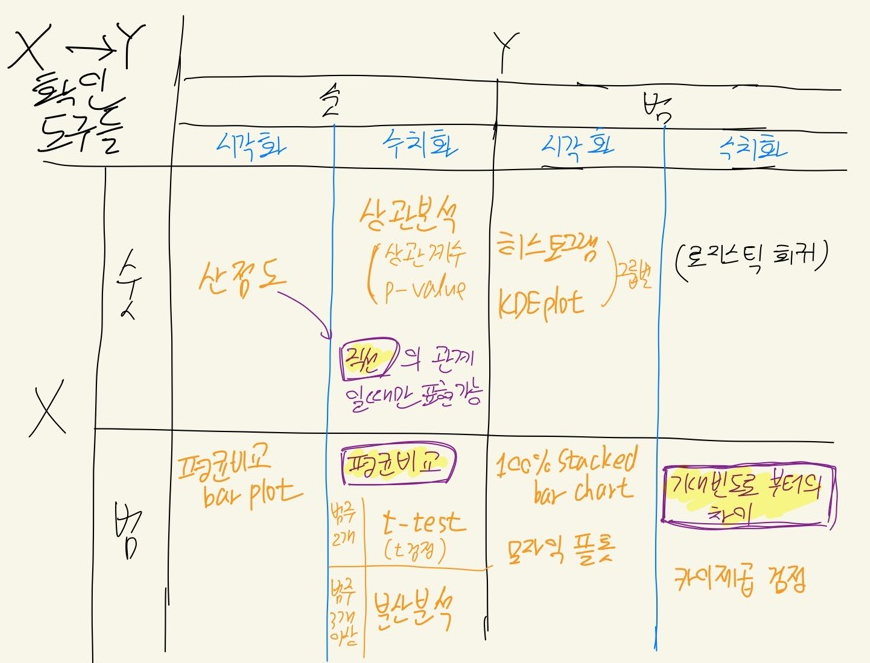 X → Y
확인
도구들
Y
수
범
시각화
수치화
시각화
수치화
X
숫
산점도
상관분석
(상관계수
p-value
직선 의 관계
일때만 표현가능
히스토그램
KDEplot
) 그룹별
(로지스틱 회귀)
범
평균비교
bar plot
평균비교
범주
2개
t-test
(t검정)
범주
3개
이상
분산분석
100% Stacked
bar chart
모자익 플롯
기대빈도로 부터의
차이
카이제곱 검정